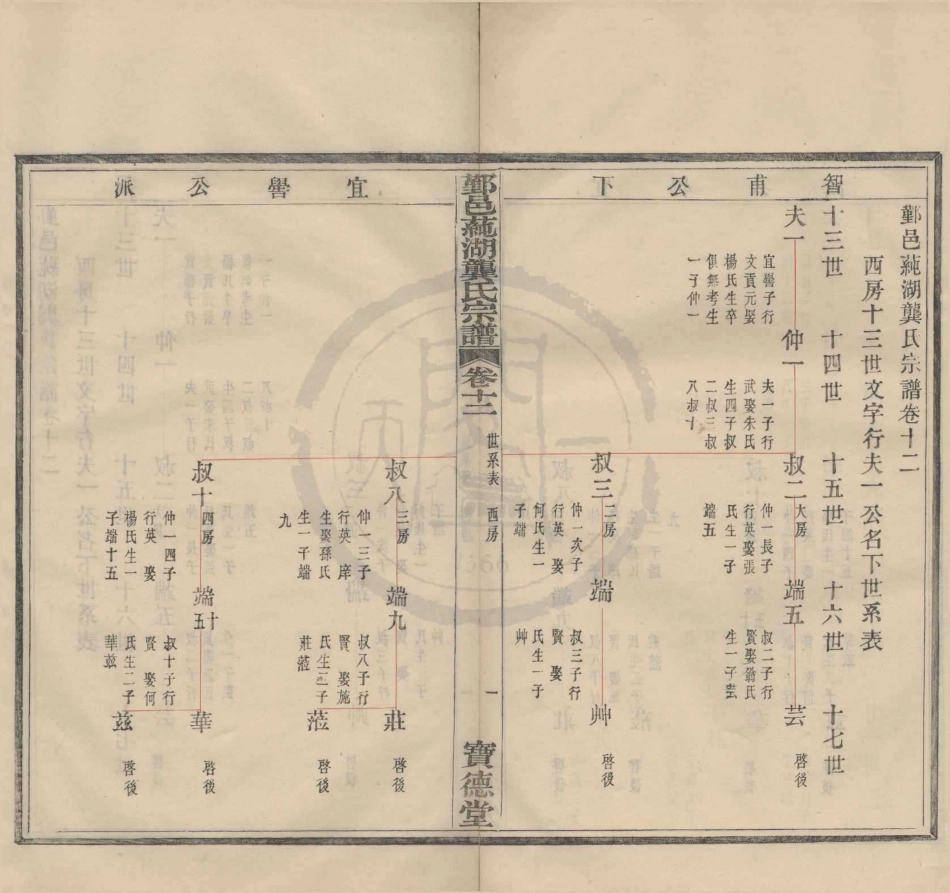 智甫公下
鄞邑蒓湖龔氏宗譜卷十二
西房十三世文字行夫一公名下世系表
十三世
十四世
十五世
十六世
十七世
夫一
宜譽子行
文貢元娶
楊氏生卒
俱無考生
一子仲一
仲一
夫一子行
武娶朱氏
生四子叔
二叔三叔
八叔十
叔二
大房
仲一長子
行英娶張
氏生一子
端五
端五
叔二子行
賢娶翁氏
生一子芸
芸
啓後
叔三
二房
仲一次子
行英娶
何氏生一
子端
端
叔三子行
賢娶
氏生一子
艸
艸
啓後
鄞邑蒓湖龔氏宗譜
卷十二
世系表
西房
一
寶德堂
宜譽公派
叔八
三房
仲一三子
行英庠
生娶孫氏
生一子端
九
端九
叔八子行
賢娶施
氏生二子
莊蒞
莊
啓後
蒞
啓後
叔十
四房
仲一四子
行英娶
楊氏生一
子端十五
端十五
叔十子行
賢娶何
氏生二子
華茲
華
啓後
茲
啓後